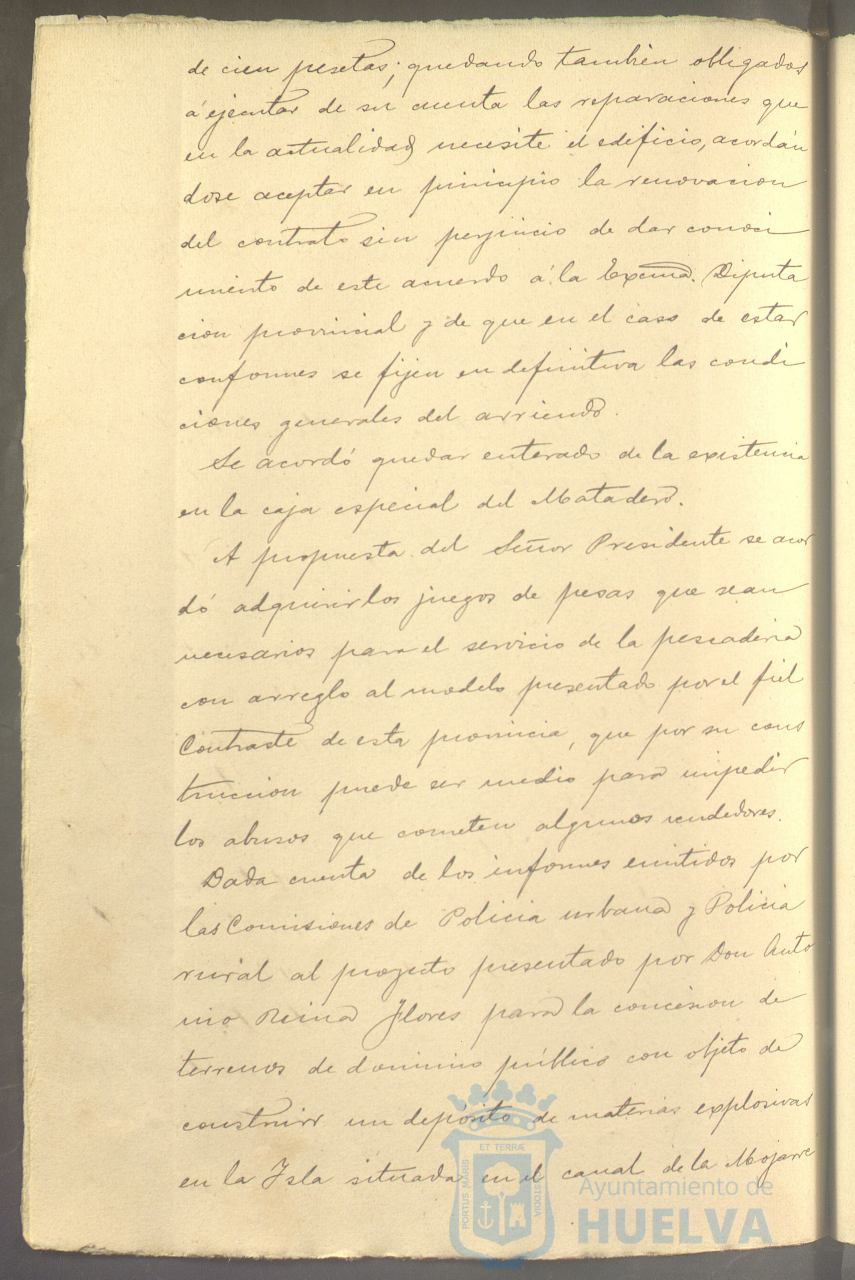 de cien pesetas; quedando tambien obligados
á ejecutar de su cuenta las reparaciones que
en la actualidad necesite el edificio, acordán
dose aceptar en principio la renovacion
del contrato sin perjuicio de dar conoci
miento de este acuerdo á la Excma. Diputa
cion provincial y de que en el caso de estar
conformes se fijen en definitiva las condi
ciones generales del arriendo.
Se acordó quedar enterado de la existencia
en la caja especial del Matadero.
A propuesta del Señor Presidente se acor
dó adquirir los juegos de pesas que sean
necesarios para el servicio de la pescaderia
con arreglo al modelo presentado por el fiel
Contraste de esta provincia, que por su cons
truccion puede ser medio para impedir
los abusos que cometen algunos vendedores.
Dada cuenta de los informes emitidos por
las Comisiones de Policia urbana y Policia
rural al proyecto presentado por Don Anto
nio Reina Flores para la concesion de
terrenos de dominio público con objeto de
construir un depósito de materias explosivas
en la Isla situada en el canal de la Mojarre
ET TERRÆ
PORTUS MARIS
CUSTODIA
Ayuntamiento de
HUELVA